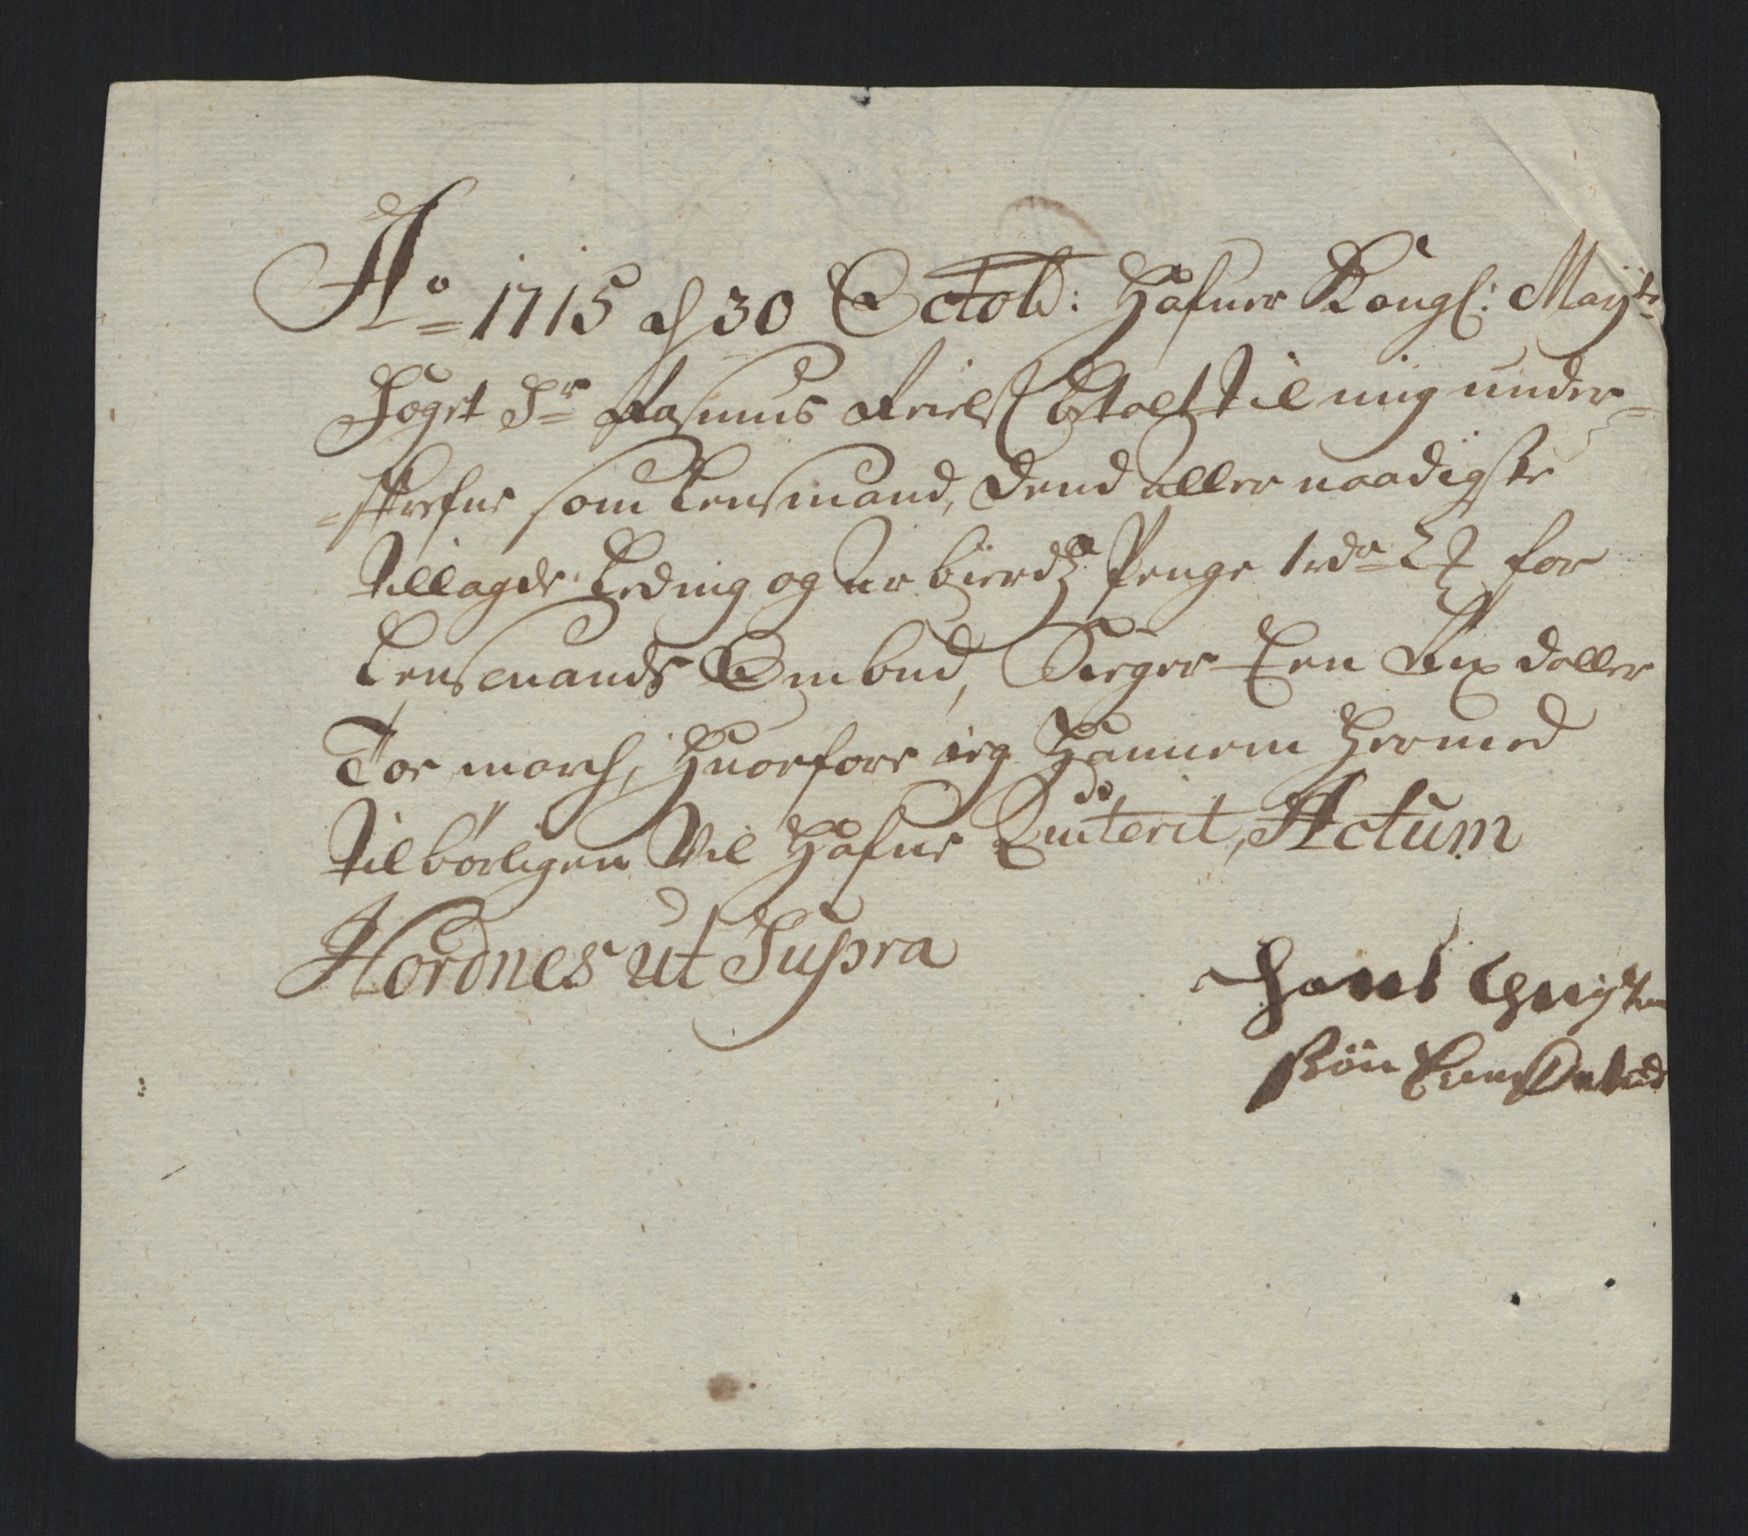 Ao 1715 d 30 Octob: Hafuer Kongl: Mayts
Foget Sr Rasmus Friels betalt til mig under-
-skrefne som Lensmand, dend aller naadigste
tillagde Leding og Arbierds Penge 1 rdr 2 # for
Lensmands Ombud, Siger Een Rix daller
Toe march, Huorfore ieg Hannem Hermed
tilbørligen Vil Hafue Quiterit, Actum
Nordnes ut Supra
Hans
søn